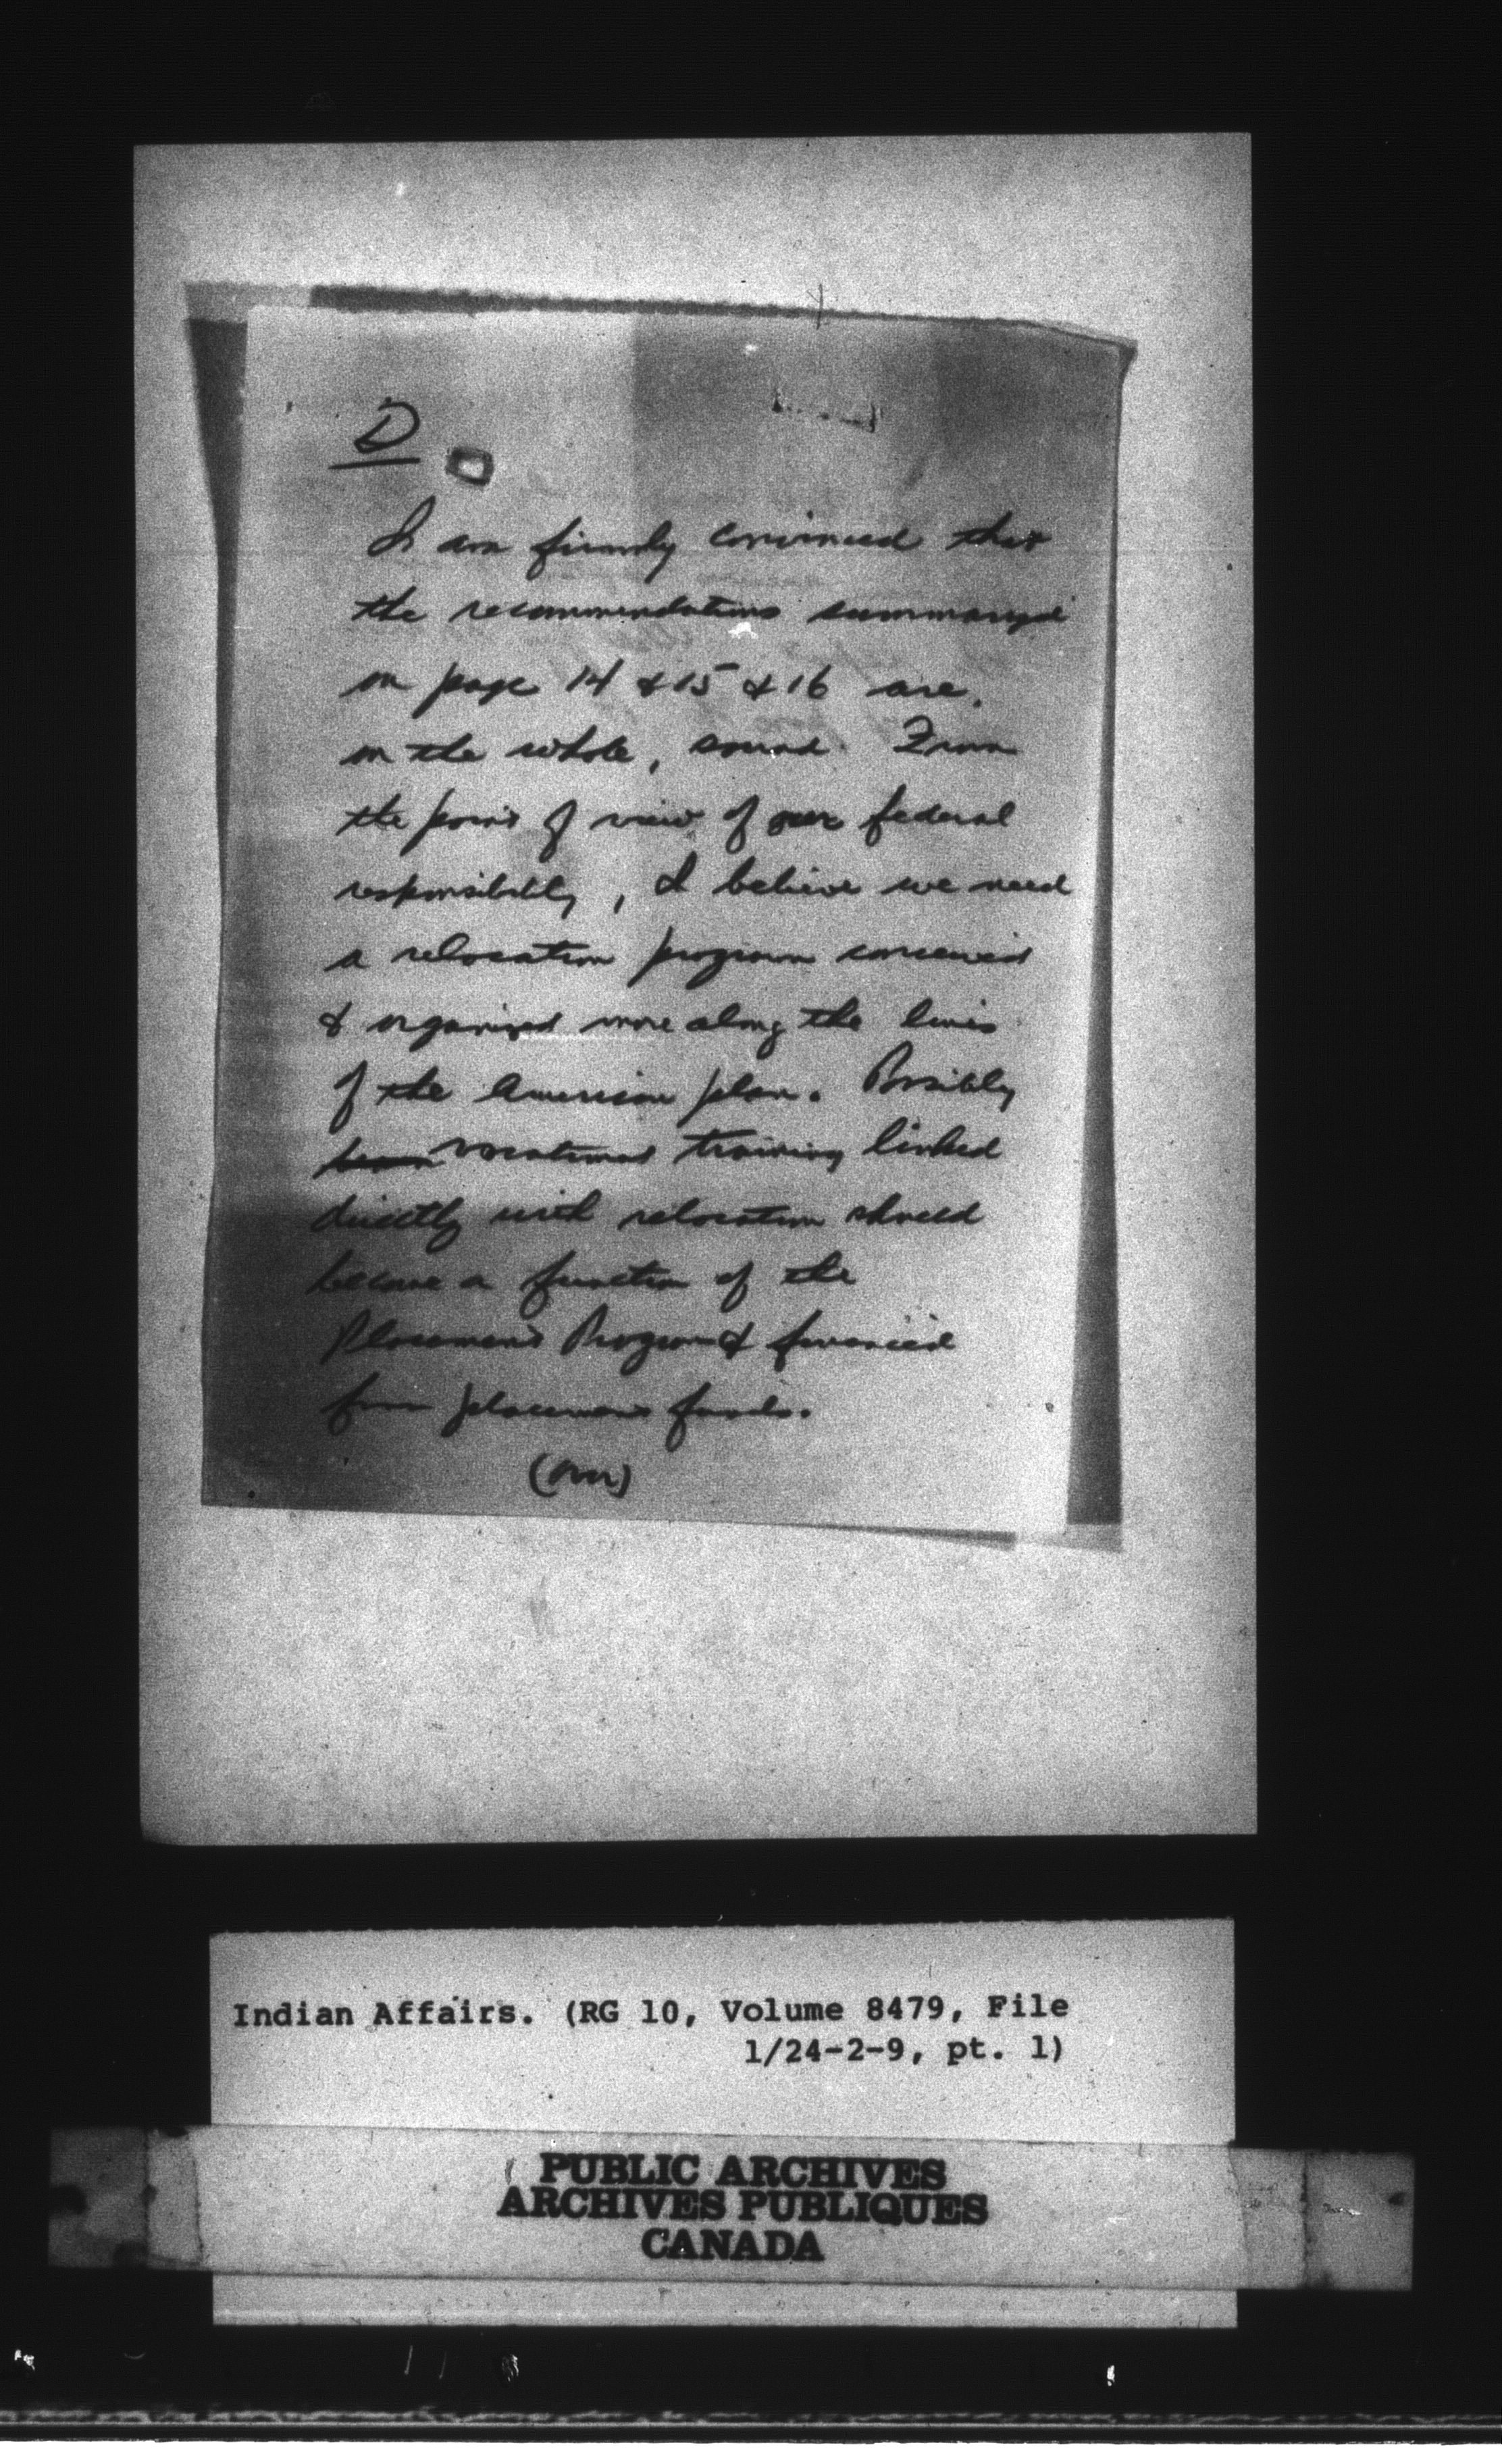 D
I am firmly convinced that
the recommendations summarized
on page 14 & 15 & 16 are,
on the whole, sound. From
the point of view of our federal
responsibility, I believe we need
a relocation program conceived
& organized more along the lines
of the American plan. Possibly
vocational training linked
directly with relocation should
become a function of the
Placement Program & financed
from placement funds.
Indian Affairs. (RG 10, Volume 8479, File
1/24-2-9, pt. 1)
PUBLIC ARCHIVES
ARCHIVES PUBLIQUES
CANADA